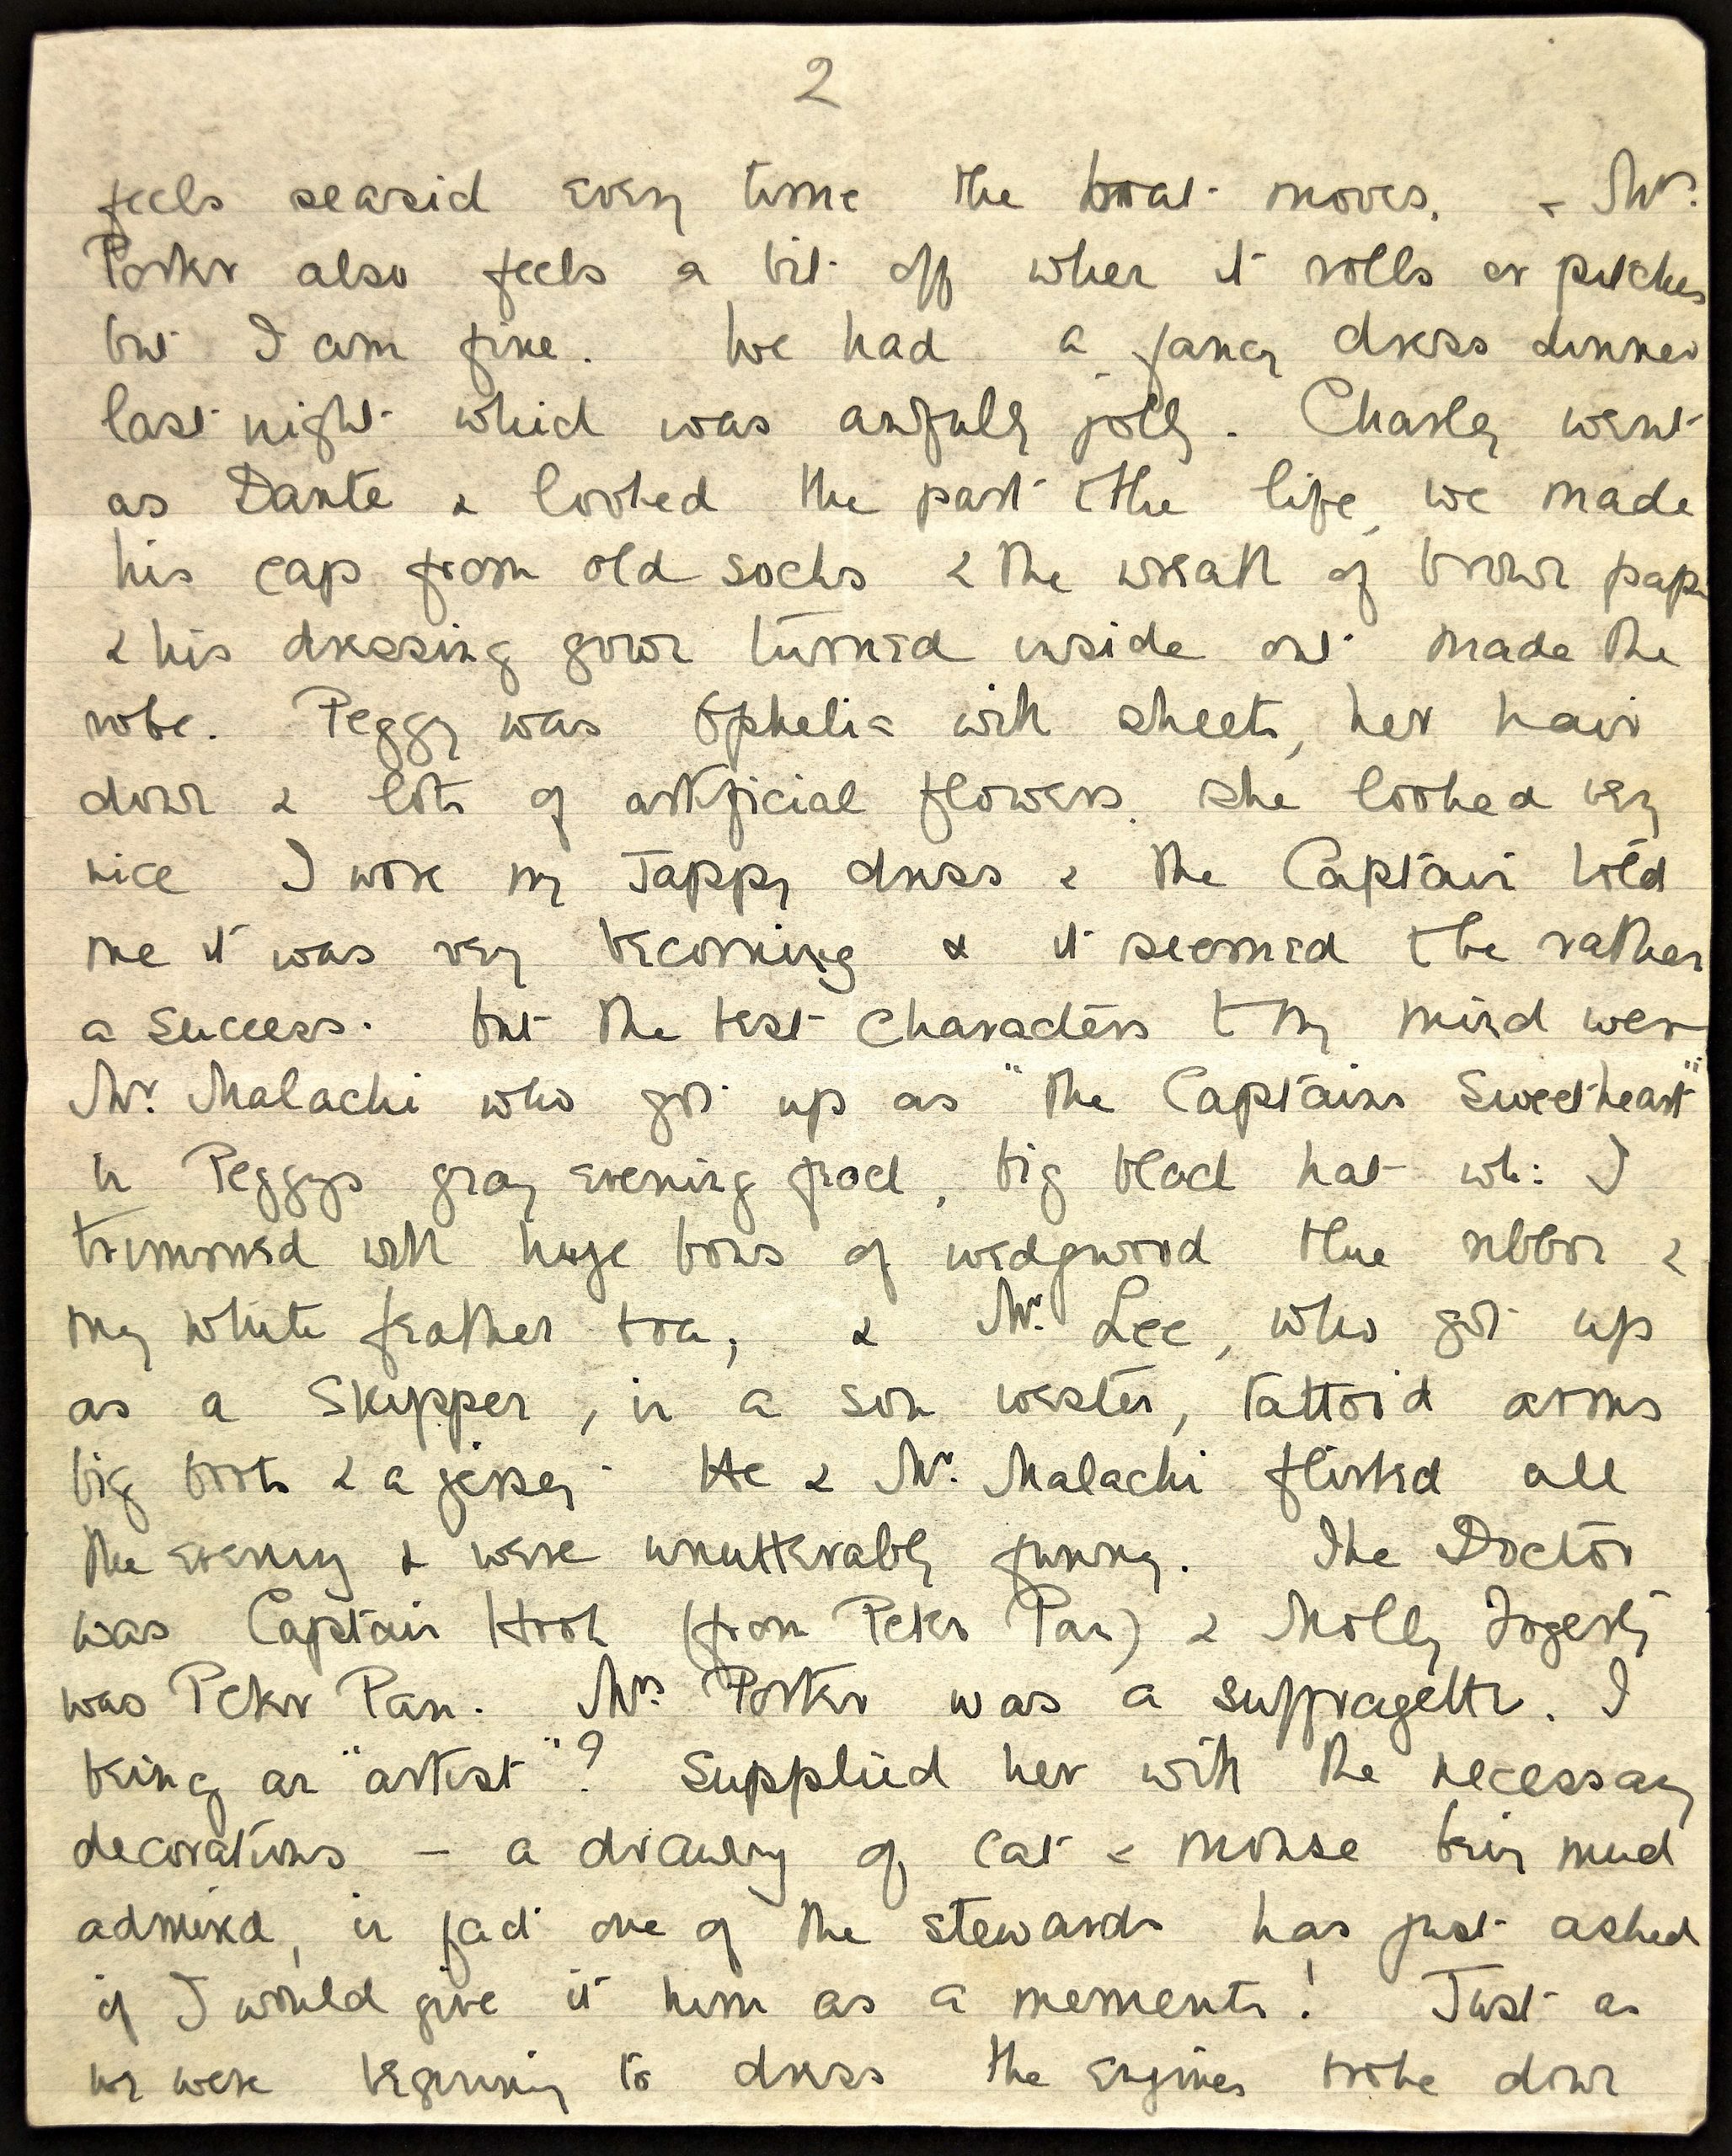 2
feels seasick every time the boat moves. & Mrs.
Porter also feels a bit off when it rolls or pitches
but I am fine. We had a fancy dress dinner
last night which was awfully jolly. Charley went
as Dante & looked the part to the life, we made
his cap from old socks & the wreath of brown paper
& his dressing gown turned inside out made the
robe. Peggy was Ophelia with sheets, her hair
down & lots of artificial flowers. She looked very
nice I wore my Jappy dress & the Captain told
me it was very becoming & it seemed to be rather
a success. but the best characters to my mind were
Mr. Malachi who got up as "the Captains Sweetheart"
in Peggys gray evening frock, big black hat wh: I
trimmed with huge bows of wedgwood blue ribbon &
my white feather boa; & Mr. Lee, who got up
as a Skipper, in a sou wester, tattoo'd arms
big boots & a jersey. He & Mr. Malachi flirted all
the evening & were unutterably funny. The Doctor
was Captain Hook (from Peter Pan) & Molly
was Peter Pan. Mrs Porter was a suffragette. I
being an "artist"? supplied her with the necessary
decorations – a drawing of cat & mouse being much
admired, in fact one of the stewards has just asked
if I would give it him as a memento! Just as
we were beginning to dress the engines broke down